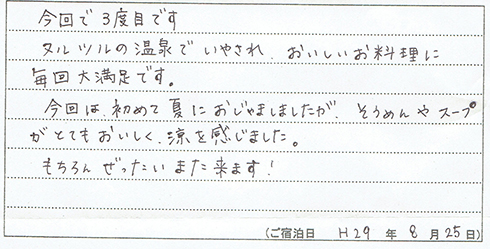 今回で3度目です
ヌルツルの温泉でいやされ、おいしいお料理に
毎回大満足です。
今回は、初めて夏におじゃましましたが、そうめんやスープ
がとてもおいしく、涼を感じました。
もちろんぜったいまた来ます!
(ご宿泊日 H29 年 8 月 25 日)